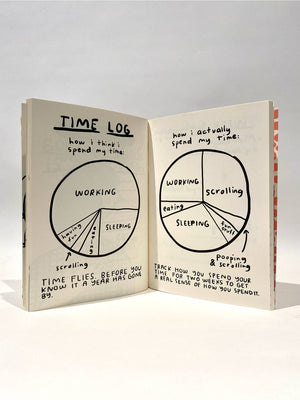 TIME LOG
how i think i
spend my time:
WORKING
SLEEPING
having
fun
eating
scrolling
TIME FLIES. BEFORE YOU
KNOW IT A YEAR HAS GONE
BY.
how i actually
spend my time:
WORKING
scrolling
eating
SLEEPING
pooping
& scrolling
TRACK HOW YOU SPEND YOUR
TIME FOR TWO WEEKS TO GET
A REAL SENSE OF HOW YOU SPEND IT.